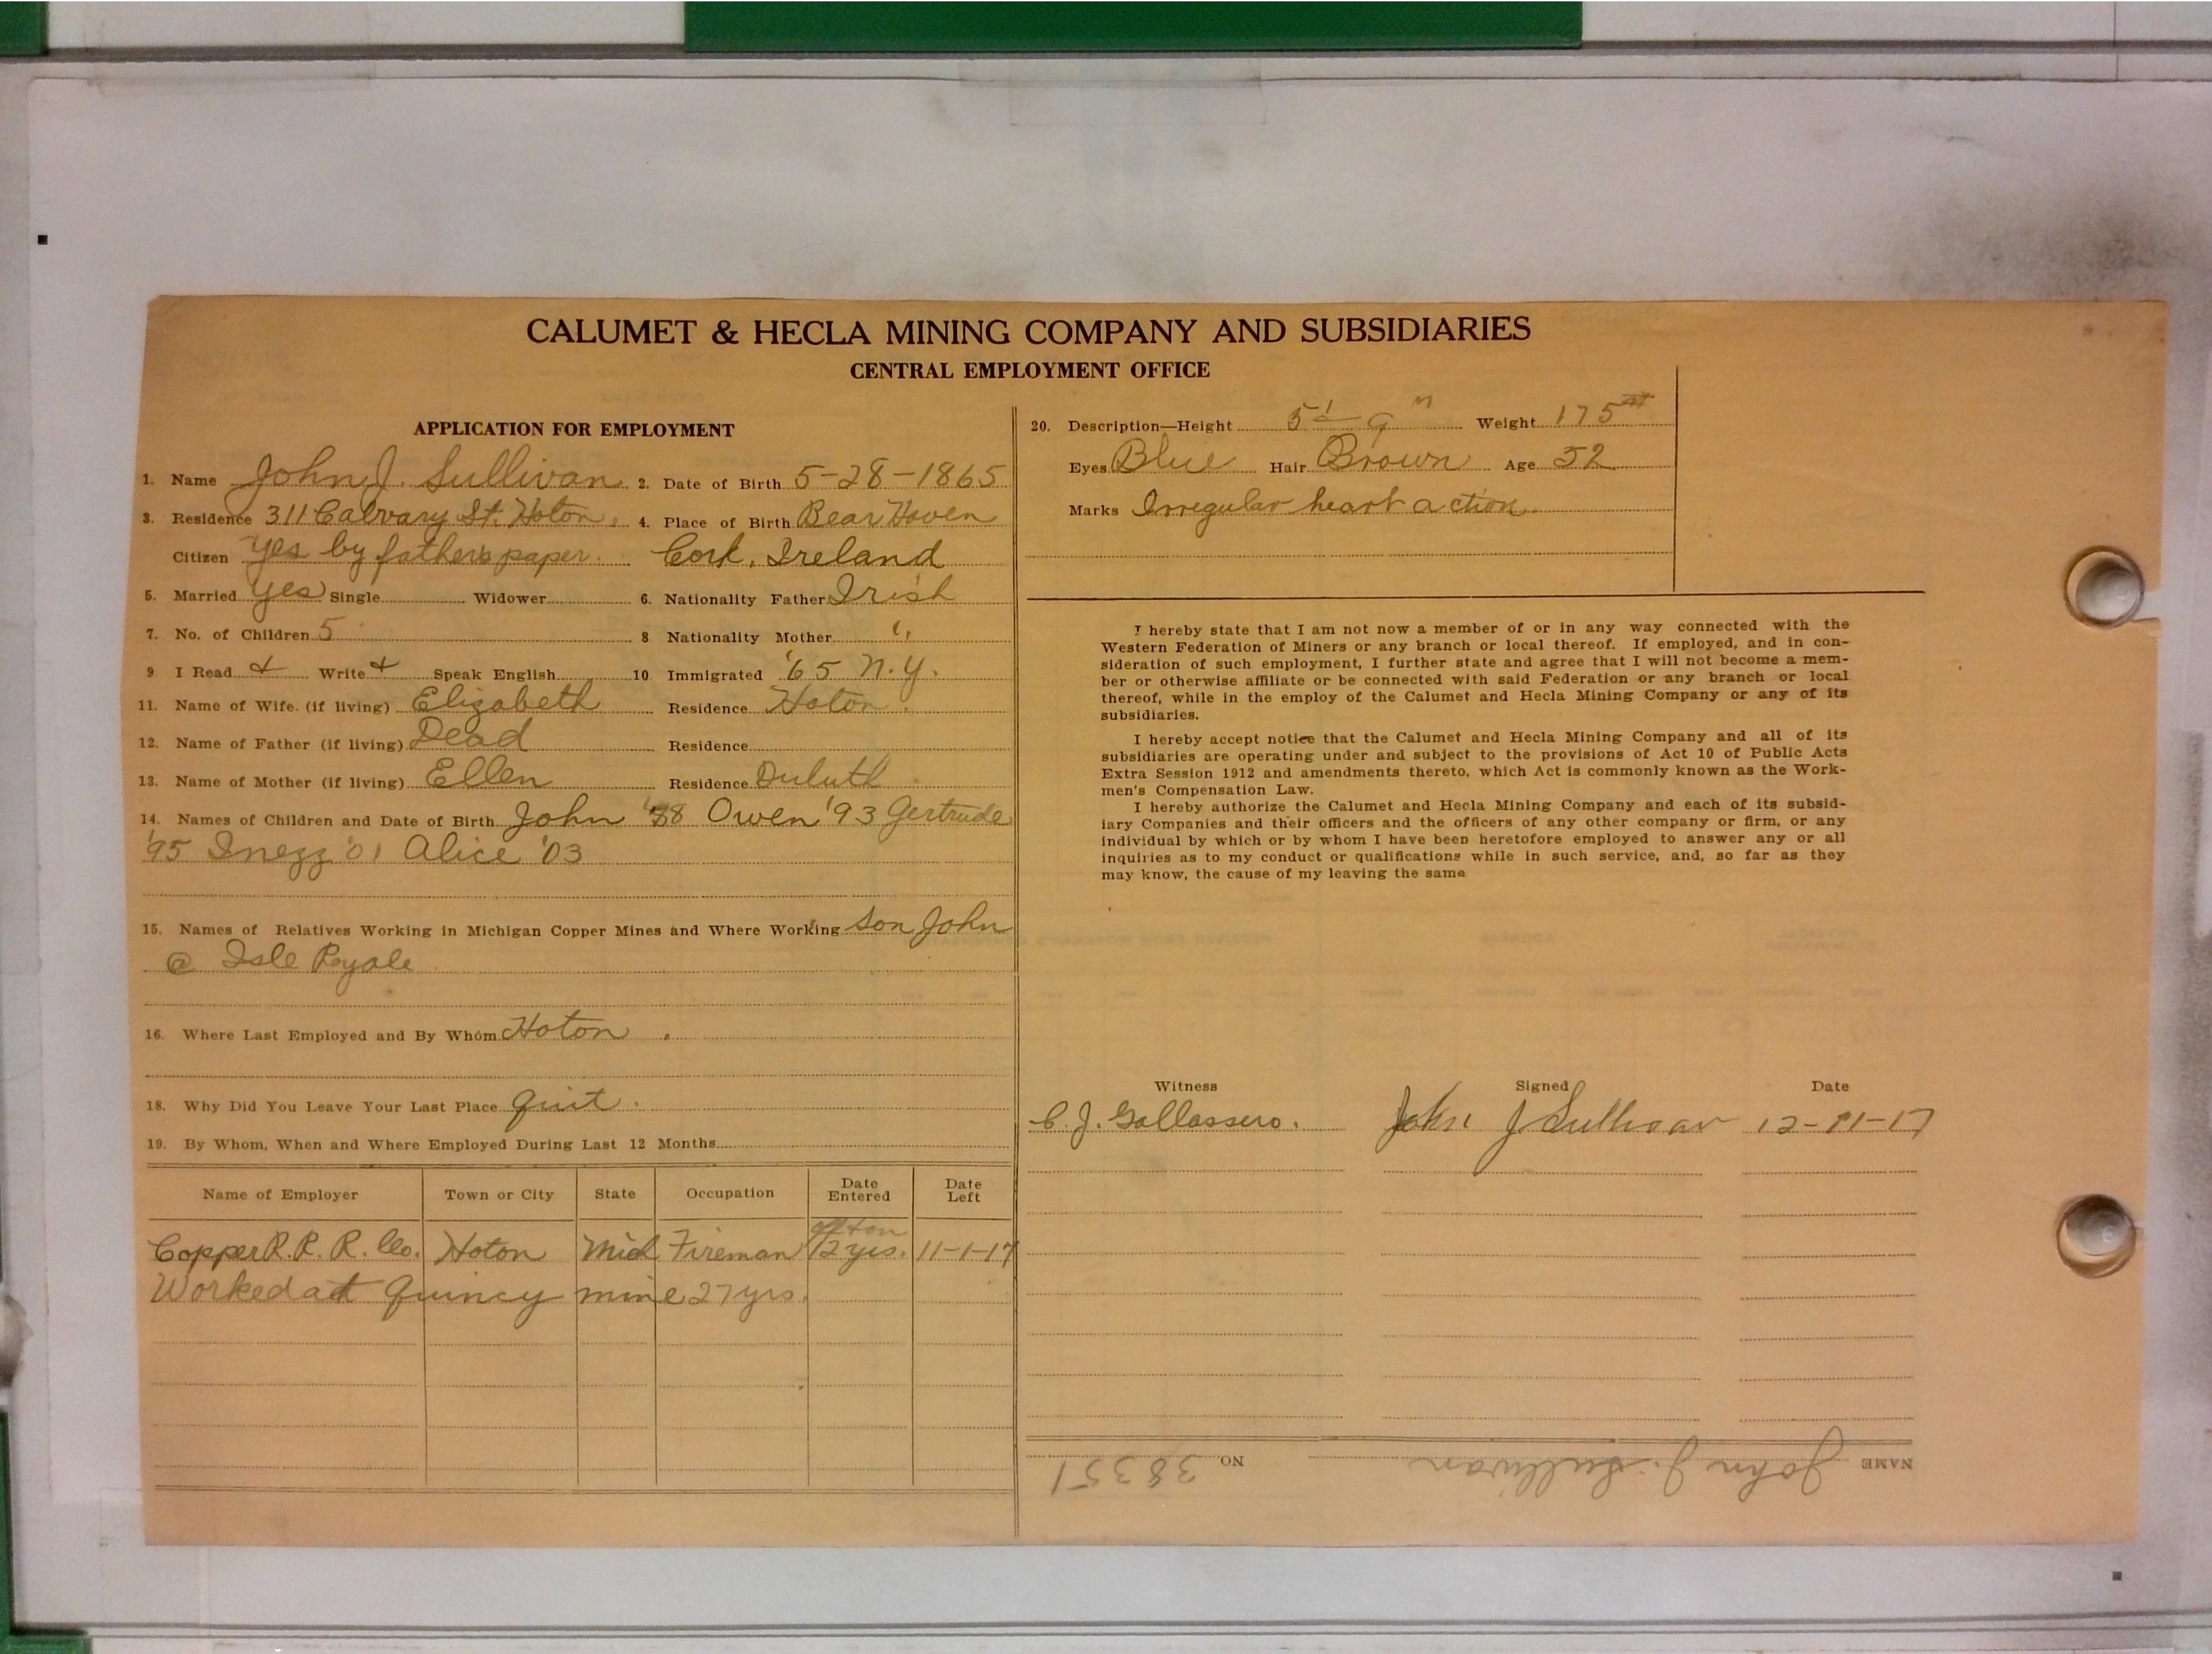 CALUMET & HECLA MINING COMPANY AND SUBSIDIARIES
CENTRAL EMPLOYMENT OFFICE
APPLICATION FOR EMPLOYMENT
1. Name John J. Sullivan 2. Date of Birth 5-28-1865
3. Residence 311 Calvary St. Hoton. 4. Place of Birth Bear Haven
Citizen Yes by fathers paper. Cork, Ireland
5. Married Yes Single Widower 6. Nationality Father Irish
7. No. of Children 5 8 Nationality Mother "
9 I Read + Write + Speak English 10 Immigrated '65 N.Y.
11. Name of Wife. (if living) Elizabeth Residence Hoton.
12. Name of Father (if living) Dead Residence
13. Name of Mother (if living) Ellen Residence Duluth
14. Names of Children and Date of Birth John '88 Owen '93 Gertrude
'95 Inezz '01 Alice '03
15. Names of Relatives Working in Michigan Copper Mines and Where Working Son John
@ Isle Royale
16. Where Last Employed and By Whom Hoton
18. Why Did You Leave Your Last Place Quit.
19. By Whom, When and Where Employed During Last 12 Months
Name of Employer Town or City State Occupation Date Entered Date Left
Copper R. R. R. Co. Hoton Mich Fireman 12 yrs. 11-1-17
Worked at Quincy mine 27 yrs.
20. Description—Height 5'-9" Weight 175#
Eyes Blue Hair Brown Age 52
Marks Irregular heart action.
I hereby state that I am not now a member of or in any way connected with the
Western Federation of Miners or any branch or local thereof. If employed, and in con-
sideration of such employment, I further state and agree that I will not become a mem-
ber or otherwise affiliate or be connected with said Federation or any branch or local
thereof, while in the employ of the Calumet and Hecla Mining Company or any of its
subsidiaries.
I hereby accept notice that the Calumet and Hecla Mining Company and all of its
subsidiaries are operating under and subject to the provisions of Act 10 of Public Acts
Extra Session 1912 and amendments thereto, which Act is commonly known as the Work-
men's Compensation Law.
I hereby authorize the Calumet and Hecla Mining Company and each of its subsid-
iary Companies and their officers and the officers of any other company or firm, or any
individual by which or by whom I have been heretofore employed to answer any or all
inquiries as to my conduct or qualifications while in such service, and, so far as they
may know, the cause of my leaving the same
Witness Signed Date
C. J. Gallassero. John J Sullivan 12-11-17
NAME John J. Sullivan NO 38351